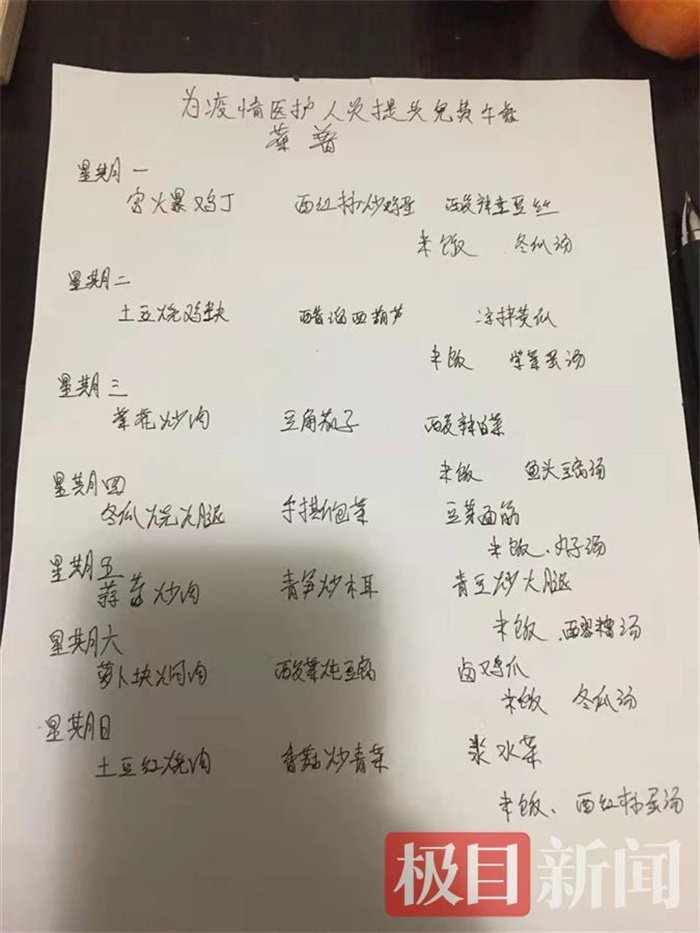 为疫情医护人员提供免费午餐
菜普
星期一
宫火暴鸡丁 西红柿炒鸡蛋 酸辣土豆丝
米饭 冬瓜汤
星期二
土豆烧鸡块 醋溜西葫芦 凉拌黄瓜
米饭 紫菜蛋汤
星期三
菜花炒肉 豆角茄子 酸辣白菜
米饭 鱼头豆腐汤
星期四
冬瓜烧火腿 手撕包菜 豆芽面筋
米饭、丸子汤
星期五
蒜苔炒肉 青笋炒木耳 青豆炒火腿
米饭、西醪糟汤
星期六
萝卜块焖肉 酸菜炖豆腐 卤鸡爪
米饭 冬瓜汤
星期日
土豆红烧肉 香菇炒青菜 浆水菜
米饭、西红柿蛋汤
极目新闻